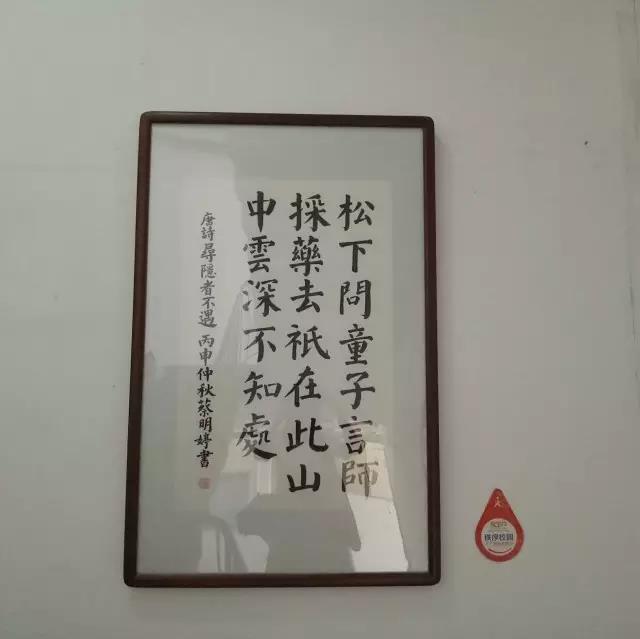 松下問童子言師
採藥去衹在此山
中雲深不知處
唐詩尋隱者不遇 丙申仲秋蔡明婷書